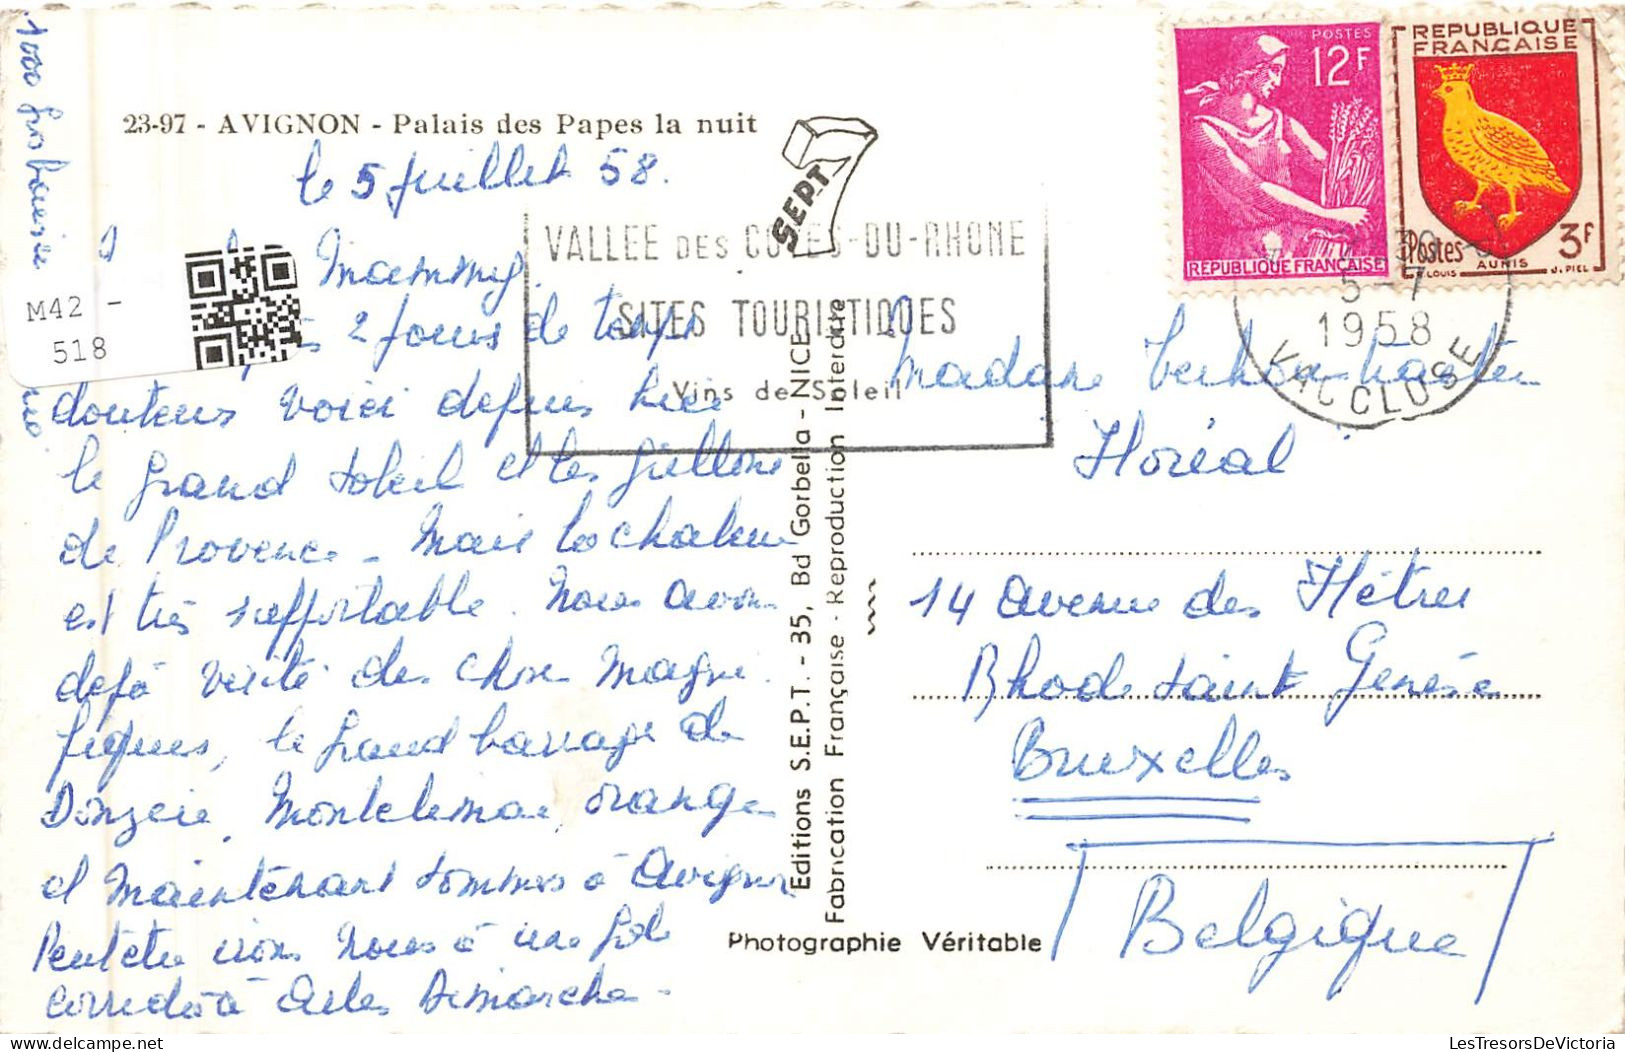 23-97 - AVIGNON - Palais des Papes la nuit
le 5 Juillet 58.
Mammy.
2 jours de temps
douteux voici depuis hier
le grand soleil et les grillons
de Provence - Mais la chaleur
est très supportable. Nous avons
déjà visité des choses magni-
fiques, le grand barrage de
Donzère, Montelimar, Orange
et maintenant sommes à Avignon
Peut être irons nous à une jolie
corrida à Arles Dimanche -
1000 gros baisers
M42 -
518
SEPT
VALLEE DES COTES-DU-RHONE
SITES TOURISTIQUES
Vins de Soleil
Editions S.E.P.T. - 35, Bd Gorbella - NICE
Fabrication Française - Reproduction Interdite
Photographie Véritable
POSTES
12F
REPUBLIQUE FRANÇAISE
REPUBLIQUE
FRANÇAISE
Postes
3F
AUNIS
R. LOUIS
J. PIEL
5-7
1958
VAUCLUSE
Madame
Floréal
14 Avenue des Hêtres
Rhode Saint Genèse
Bruxelles
Belgique
delcampe.net
LesTresorsDeVictoria